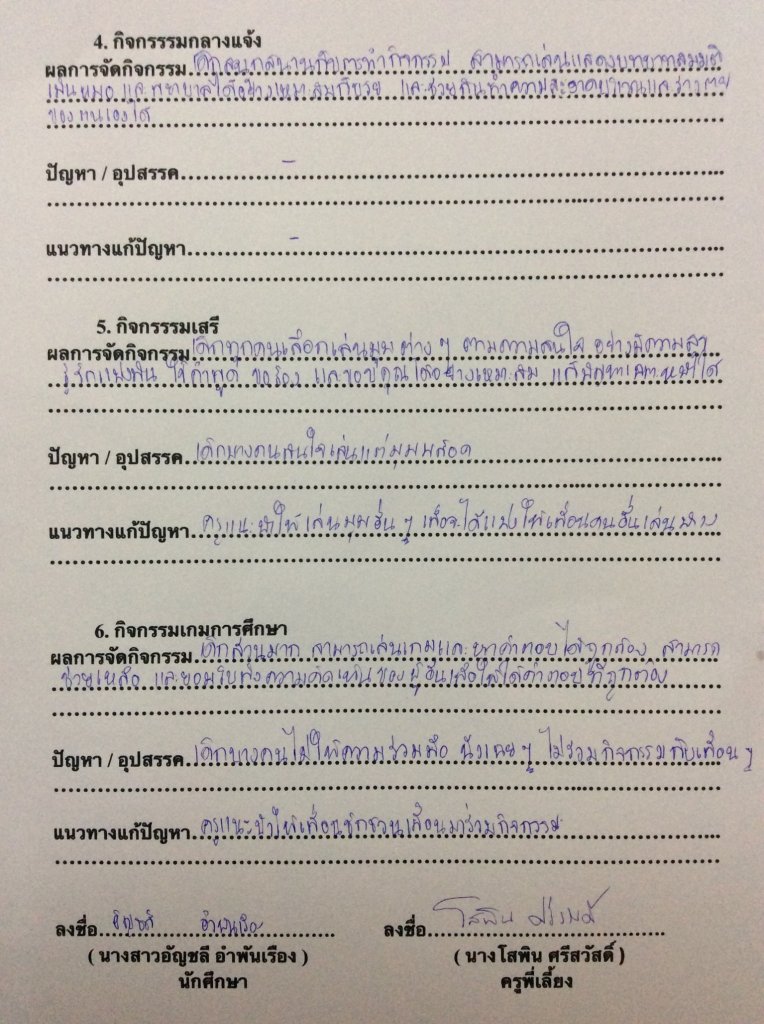 4. กิจกรรรมกลางแจ้ง
ผลการจัดกิจกรรม เด็กสนุกสนานกับการทำกิจกรรม สามารถเล่นแสดงบทบาทสมมติ
เป็นหมอและพยาบาลได้อย่างเหมาะสมกับวัย และช่วยกันทำความสะอาดบริเวณและร่างกาย
ของตนเองได้
ปัญหา / อุปสรรค -
แนวทางแก้ปัญหา -
5. กิจกรรรมเสรี
ผลการจัดกิจกรรม เด็กทุกคนเลือกเล่นมุมต่าง ๆ ตามความสนใจ อย่างมีความสุข
รู้จักแบ่งปัน ใช้คำพูด ขอร้อง และขอบคุณได้อย่างเหมาะสม แก้ปัญหาเฉพาะหน้าได้
ปัญหา / อุปสรรค เด็กบางคนสนใจเล่นแต่มุมบล็อค
แนวทางแก้ปัญหา ครูแนะนำให้เล่นมุมอื่น ๆ เพื่อจะได้แบ่งให้เพื่อนคนอื่นเล่นบ้าง
6. กิจกรรมเกมการศึกษา
ผลการจัดกิจกรรม เด็กส่วนมาก สามารถเล่นเกมและหาคำตอบได้ถูกต้อง สามารถ
ช่วยเหลือ และยอมรับฟังความคิดเห็นของผู้อื่นเพื่อให้ได้คำตอบที่ถูกต้อง
ปัญหา / อุปสรรค เด็กบางคนไม่ให้ความร่วมมือ นั่งเฉยๆ ไม่ร่วมกิจกรรมกับเพื่อน ๆ
แนวทางแก้ปัญหา ครูแนะนำให้เพื่อนชักชวนเพื่อนมาร่วมกิจกรรม
ลงชื่อ อัญชลี อำพันเรือง ลงชื่อ โสพิน ศรีสวัสดิ์
( นางสาวอัญชลี อำพันเรือง ) ( นางโสพิน ศรีสวัสดิ์ )
นักศึกษา ครูพี่เลี้ยง